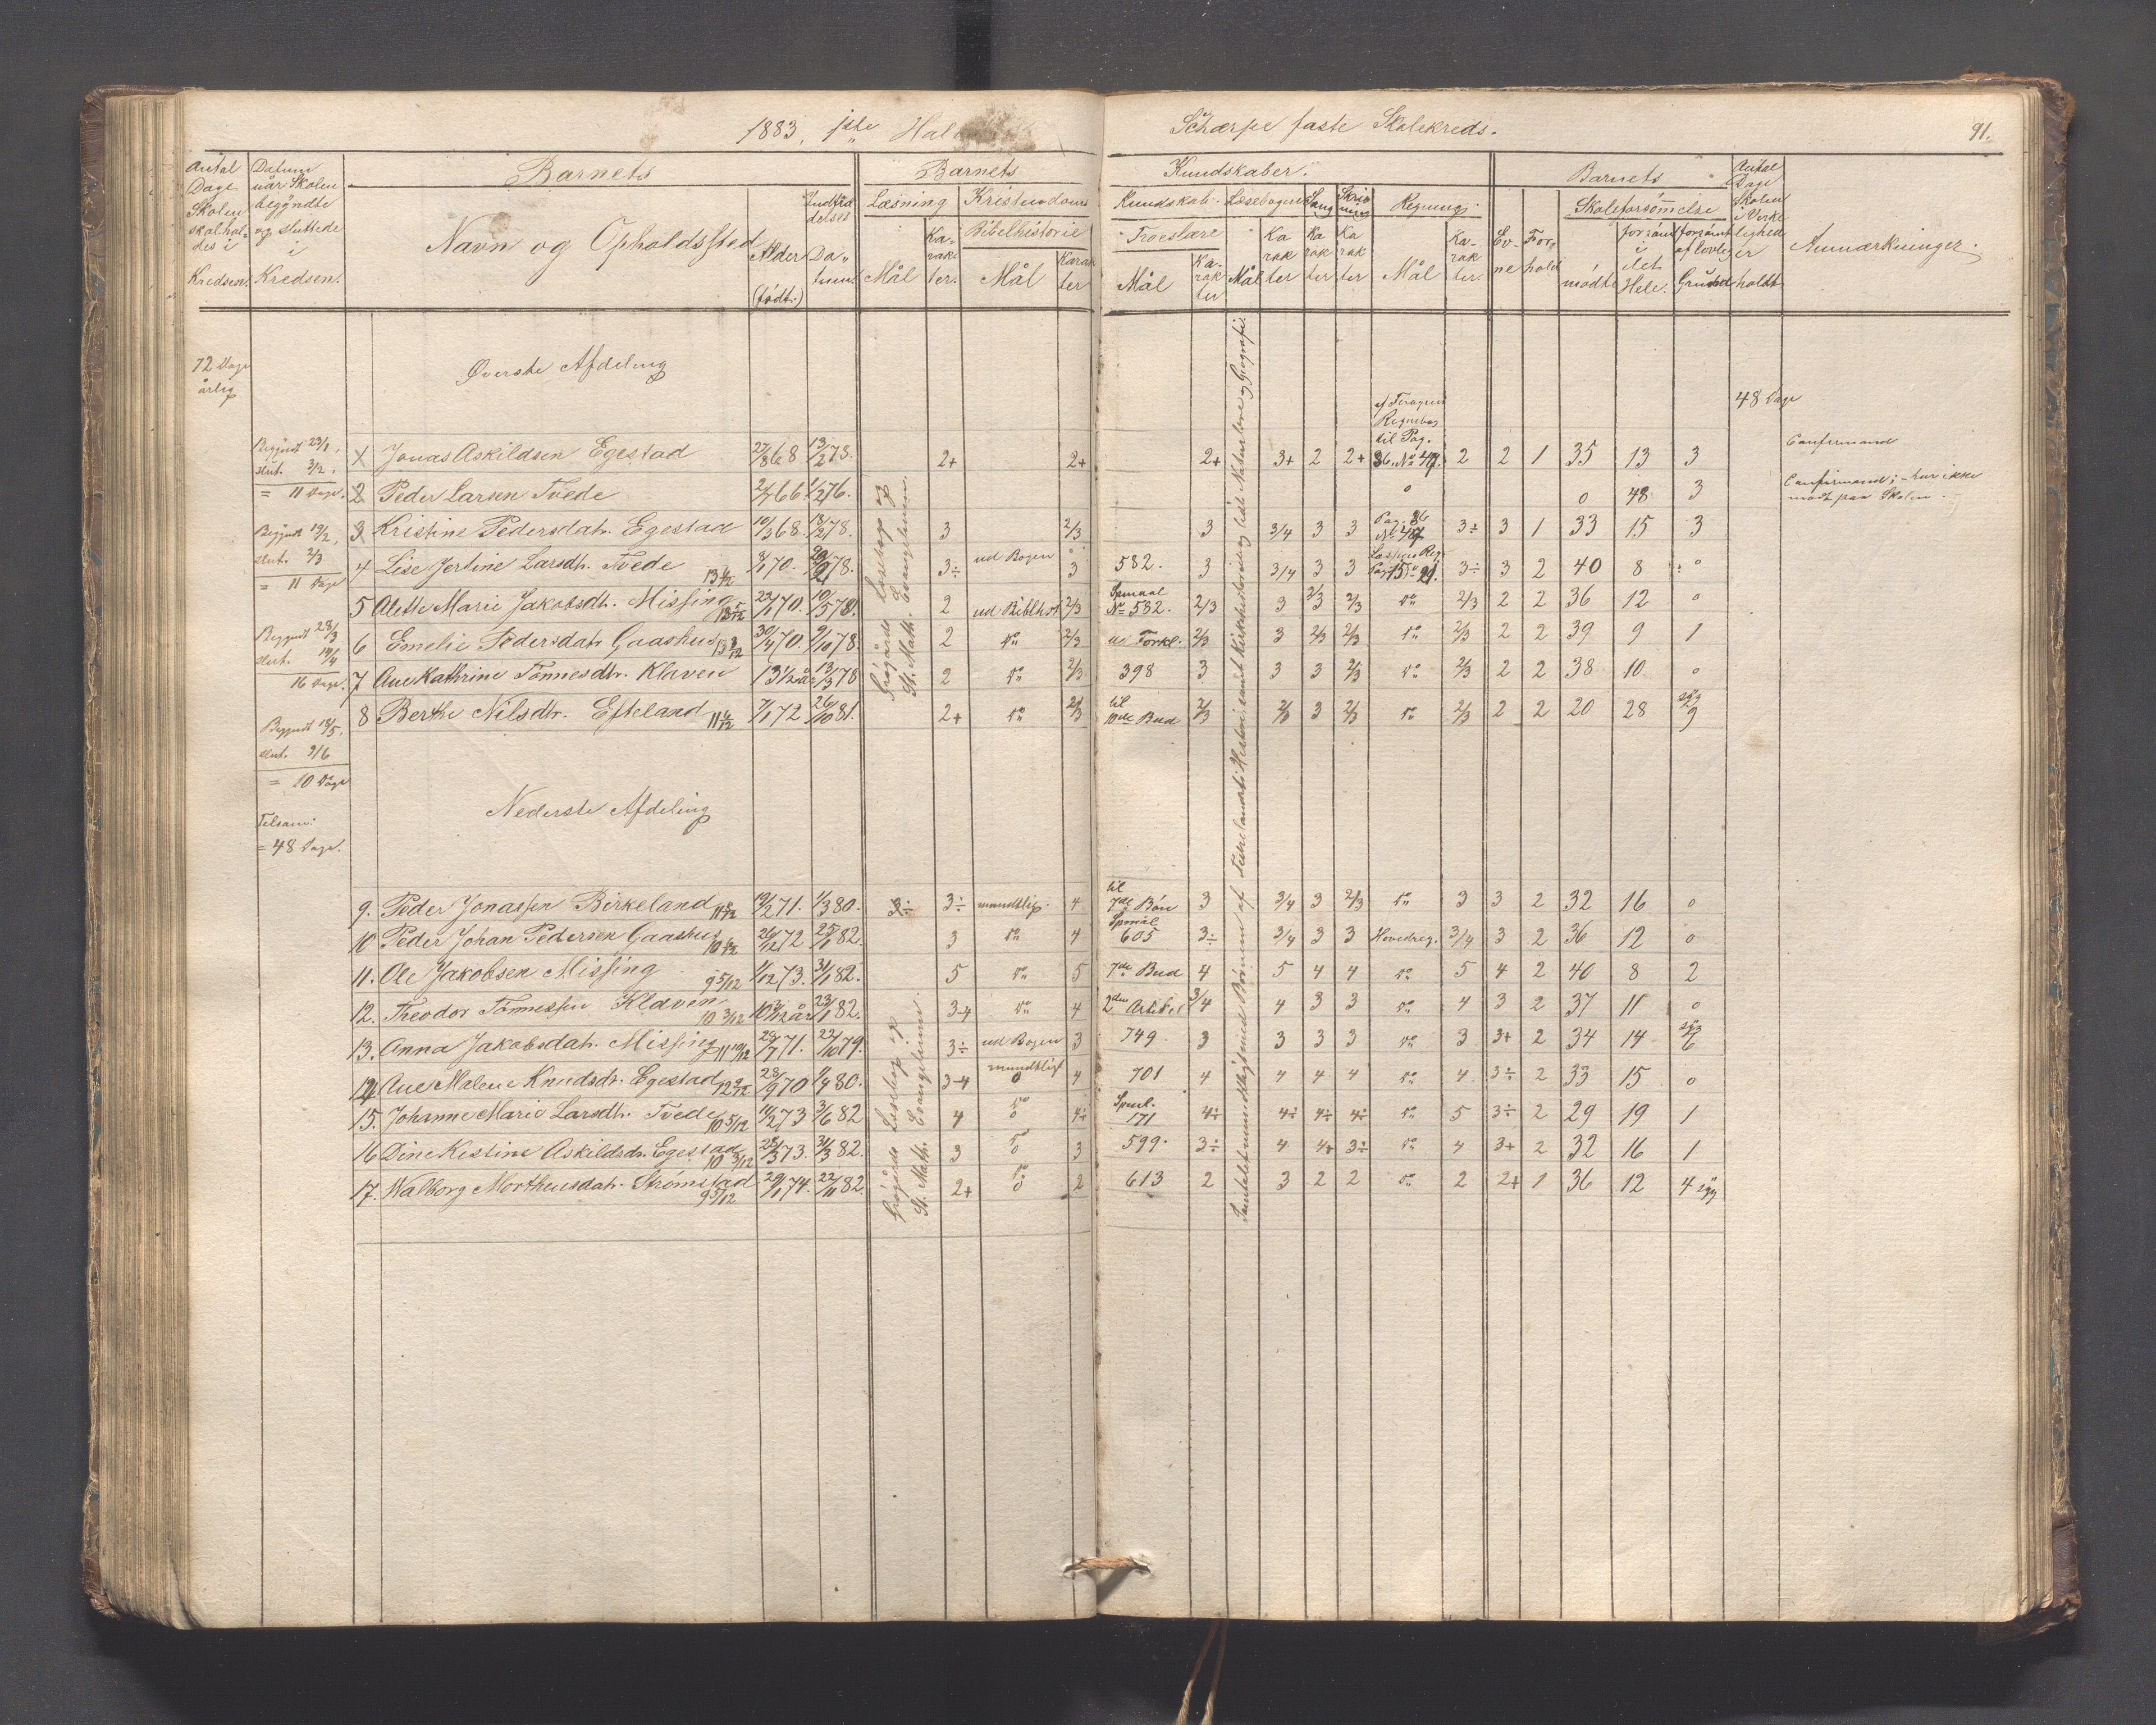 1883, 1ste Hal
Schærpe faste Skolekreds.
91.
Antal Dage Skolen skal holdes i Kredsen.
Datum når Skolen begyndte og sluttede i Kredsen.
Barnets
Navn og Opholdssted
Alder (født.)
Indtrædelses Datum.
Barnets
Kundskaber.
Læsning
Mål
Karakter.
Kristendoms
Kundskab.
Bibelhistorie
Mål
Karakter
Troeslære
Mål
Karakter
Læsebogen
Mål
Karakter
Sang
Karakter
Skrivning
Karakter
Regning.
Mål
Karakter.
Evne
Forhold
Barnets
Skoleforsømmelse
mødte
forsømt i det Hele.
forsømt af lovlig Grund
Antal Dage Skolen i Virkelighed er holdt
Anmærkninger.
72 Dage årlig
Øverste Afdeling
48 Dage
Begyndt 23/1, slut. 3/2. = 11 Dage.
Begyndt 19/2, slut. 2/3 = 11 Dage
Begyndt 28/3 slut. 14/4 16 Dage.
Begyndt 18/5, slut. 9/6 = 10 Dage
Tilsam: = 48 Dage.
Grøgårds Læsebog og St. Math. Evangelium.
af Feragens Regnebog til Pag.
Jonas Askildsen Egestad 27/8 68 13/2 78. 2+ 2+ 2+ 3+ 2 2+ 36. No 47. 2 2 1 35 13 3 Confirmand
2 Peder Larsen Tvede 2/7 66 1/2 76. 0 0 48 3 Confirmand; – har ikke mødt paa Skolen.
3 Kristine Pedersdatr. Egestad 10/3 68. 13/2 78. 3 2/3 3 3/4 3 3 Pag. 36 No 47 3÷ 3 1 33 15 3
4 Lise Jertine Larsdtr. Tvede 70. 78. 3÷ ud Bogen 3 582. 3 3/4 3 3 3÷ 3 2 40 8 0
5 Alette Marie Jakobsdtr. Missing 23/1 70. 10/5 78. 2 ud Biblhst 2/3 Spmaal No 532. 2/3 3 2/3 2/3 do 2/3 2 2 36 12 0
6 Emelie Pedersdatr. Gaashus 30/4 70. 9/10 78. 2 do 2/3 u. Forkl. 2/3 3 2/3 2/3 do 2/3 2 2 39 9 1
7 Ane Kathrine Tönnesdtr. Klaven 13 1/2 år 13/3 78 2 do 2/3 398 3 3 3 2/3 do 2/3 2 2 38 10. 0
8 Berthe Nilsdtr. Efteland 11 4/12 7/1 72 26/10 81. 2+ do 2/3 til 10de Bud 2/3 2/3 3 2/3 do 2/3 2 2 20 28 syg 9
Nederste Afdeling
9. Peder Jonassen Birkeland 19/2 71. 1/3 80. 3÷ mundtlig. 4 til 7de Bön 3 3/4 3 2/3 do 3 3 2 32 16 0
10 Peder Johan Pedersen Gaashus 26/12 72 25/1 82. 3 do 4 Spmål 605 3÷ 3/4 3 3 Hovedreg. 3/4 3 2 36 12 0
11. Ole Jakobsen Missing 9 5/12 1/12 73. 31/1 82. 5 do 5 7de Bud 4 5 4 4 do 5 4 2 40 8 2
12. Theodor Tönnessen Klaven 10 3/12 10 3/12 år 23/1 82. 3-4 do 4 2den Artikel 3/4 4 3 3 do 4 3 2 37 11 0
13. Anna Jakobsdatr. Missing 11 10/12 29/7 71. 22/10 79. 3÷ ud Bogen 3 749. 3 3 3 3 do 3 3+ 2 34 14 syg 6
14 Ane Malene Knudsdr. Egestad 12 9/12 28/9 70 1/4 80. 3-4 mundtligt 0 4 701 4 4 4 4 do 4 3÷ 2 33 15 0
15. Johanne Marie Larsdtr. Tvede 10 5/12 10/2 73 3/6 82 4 do 0 4÷ Spml. 171 4÷ 4÷ 4÷ 4÷ do 5 3÷ 2 29 19 1
16 Dine Kistine Askildsdr. Egestad 10 3/12 25/3 73. 31/3 82. 3 do 0 3 599. 3÷ 4 4+ 3÷ do 4 3+ 2 32 16 1
17. Walborg Morthensdatr. Strömstad 9 5/12 20/1 74. 22/11 82. 2+ do 0 2 613 2 3 2 2 do 2 2+ 1 36 12 4 syg
Grøgårds Læsebog og St. Math. Evangelium.